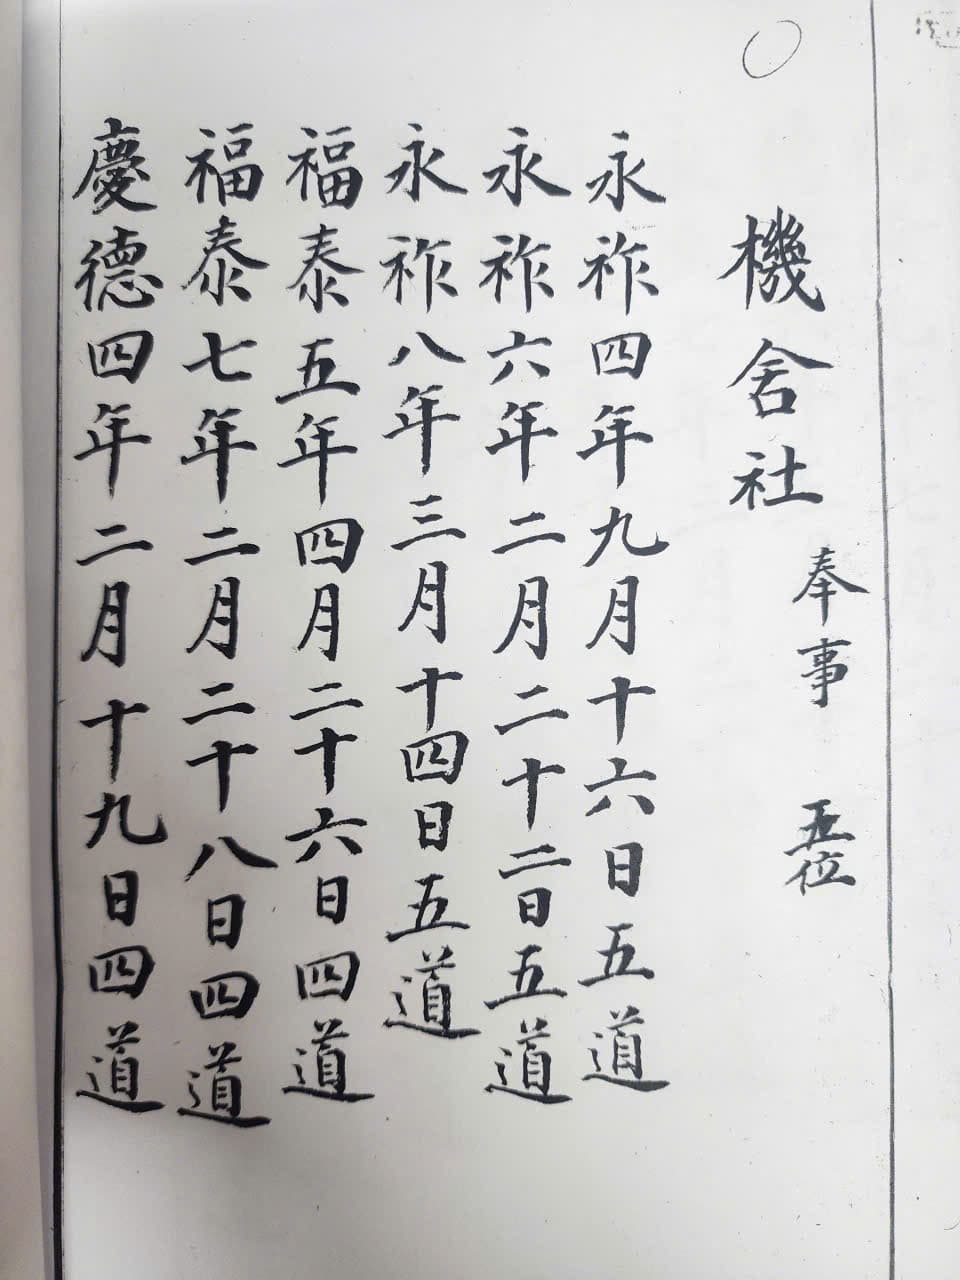 機舍社
奉事 五位
永祚四年九月十六日五道
永祚六年二月二十二日五道
永祚八年三月十四日五道
福泰五年四月二十六日四道
福泰七年二月二十八日四道
慶德四年二月十九日四道